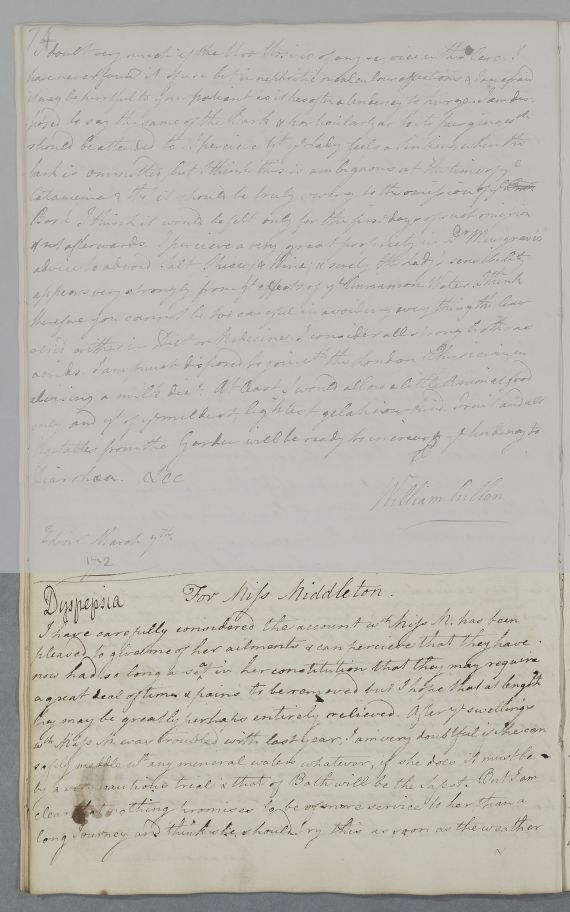 74
I doubt very much if the Uva Ursi is of any service in this Case. I
have never found it of use but in nephritic or calculous affections & I am afraid
it may be hurtful to your patient as it has often a tendency to purge. I am dis-
posed to say the same of the Bark &
should be attended to. I perceive yt ye Lady feels a sinking when the
bark is ommitted but I think this is ambiguous at the time of ye
Catamenia & if it should be truly owing to the omission of ye
Bark I think it would be felt only for the first days of such omission
& not afterwards. I perceive a very great propriety in Dr Musgrave's
advice to avoid Salt Spices & Wine; & surely the Lady's sensibility
appears very strongly from ye effects of ye Cinnamon Water. I think
therefore you cannot be too careful in avoiding every thing the least
acrid either in Diet or Medicine. I consider all strong broths as
acrids. I am much disposed to join with the London Physician in
advising a milk diet. At least I would allow a little Animal food
only and yt of ye mildest, lightest gelatinous kind. Fruit and all
vegetables from the Garden will be ready to increase ye tendency to
Diarrhœa. &cc
William Cullen
Edinr March 7th
1772
Dyspepsia For Miss Middleton.
I have carefully considered the account wch Miss M. has been
pleased to give me of her ailments & can perceive that they have
now had so long a seat in her constitution that they may require
a great deal of time & pains to be removed but I hope that at length
they may be greatly perhaps entirely relieved. After ye swellings
wch Miss M. was troubled with last year. I am very doubtful if she can
safely meddle wt any meneral waters whatever, if she does it must be
by a very cautious trial & that of Bath will be the safest. But I am
clear that nothing promises to be of more service to her than a
long Journey and think she should try this as soon as the weather